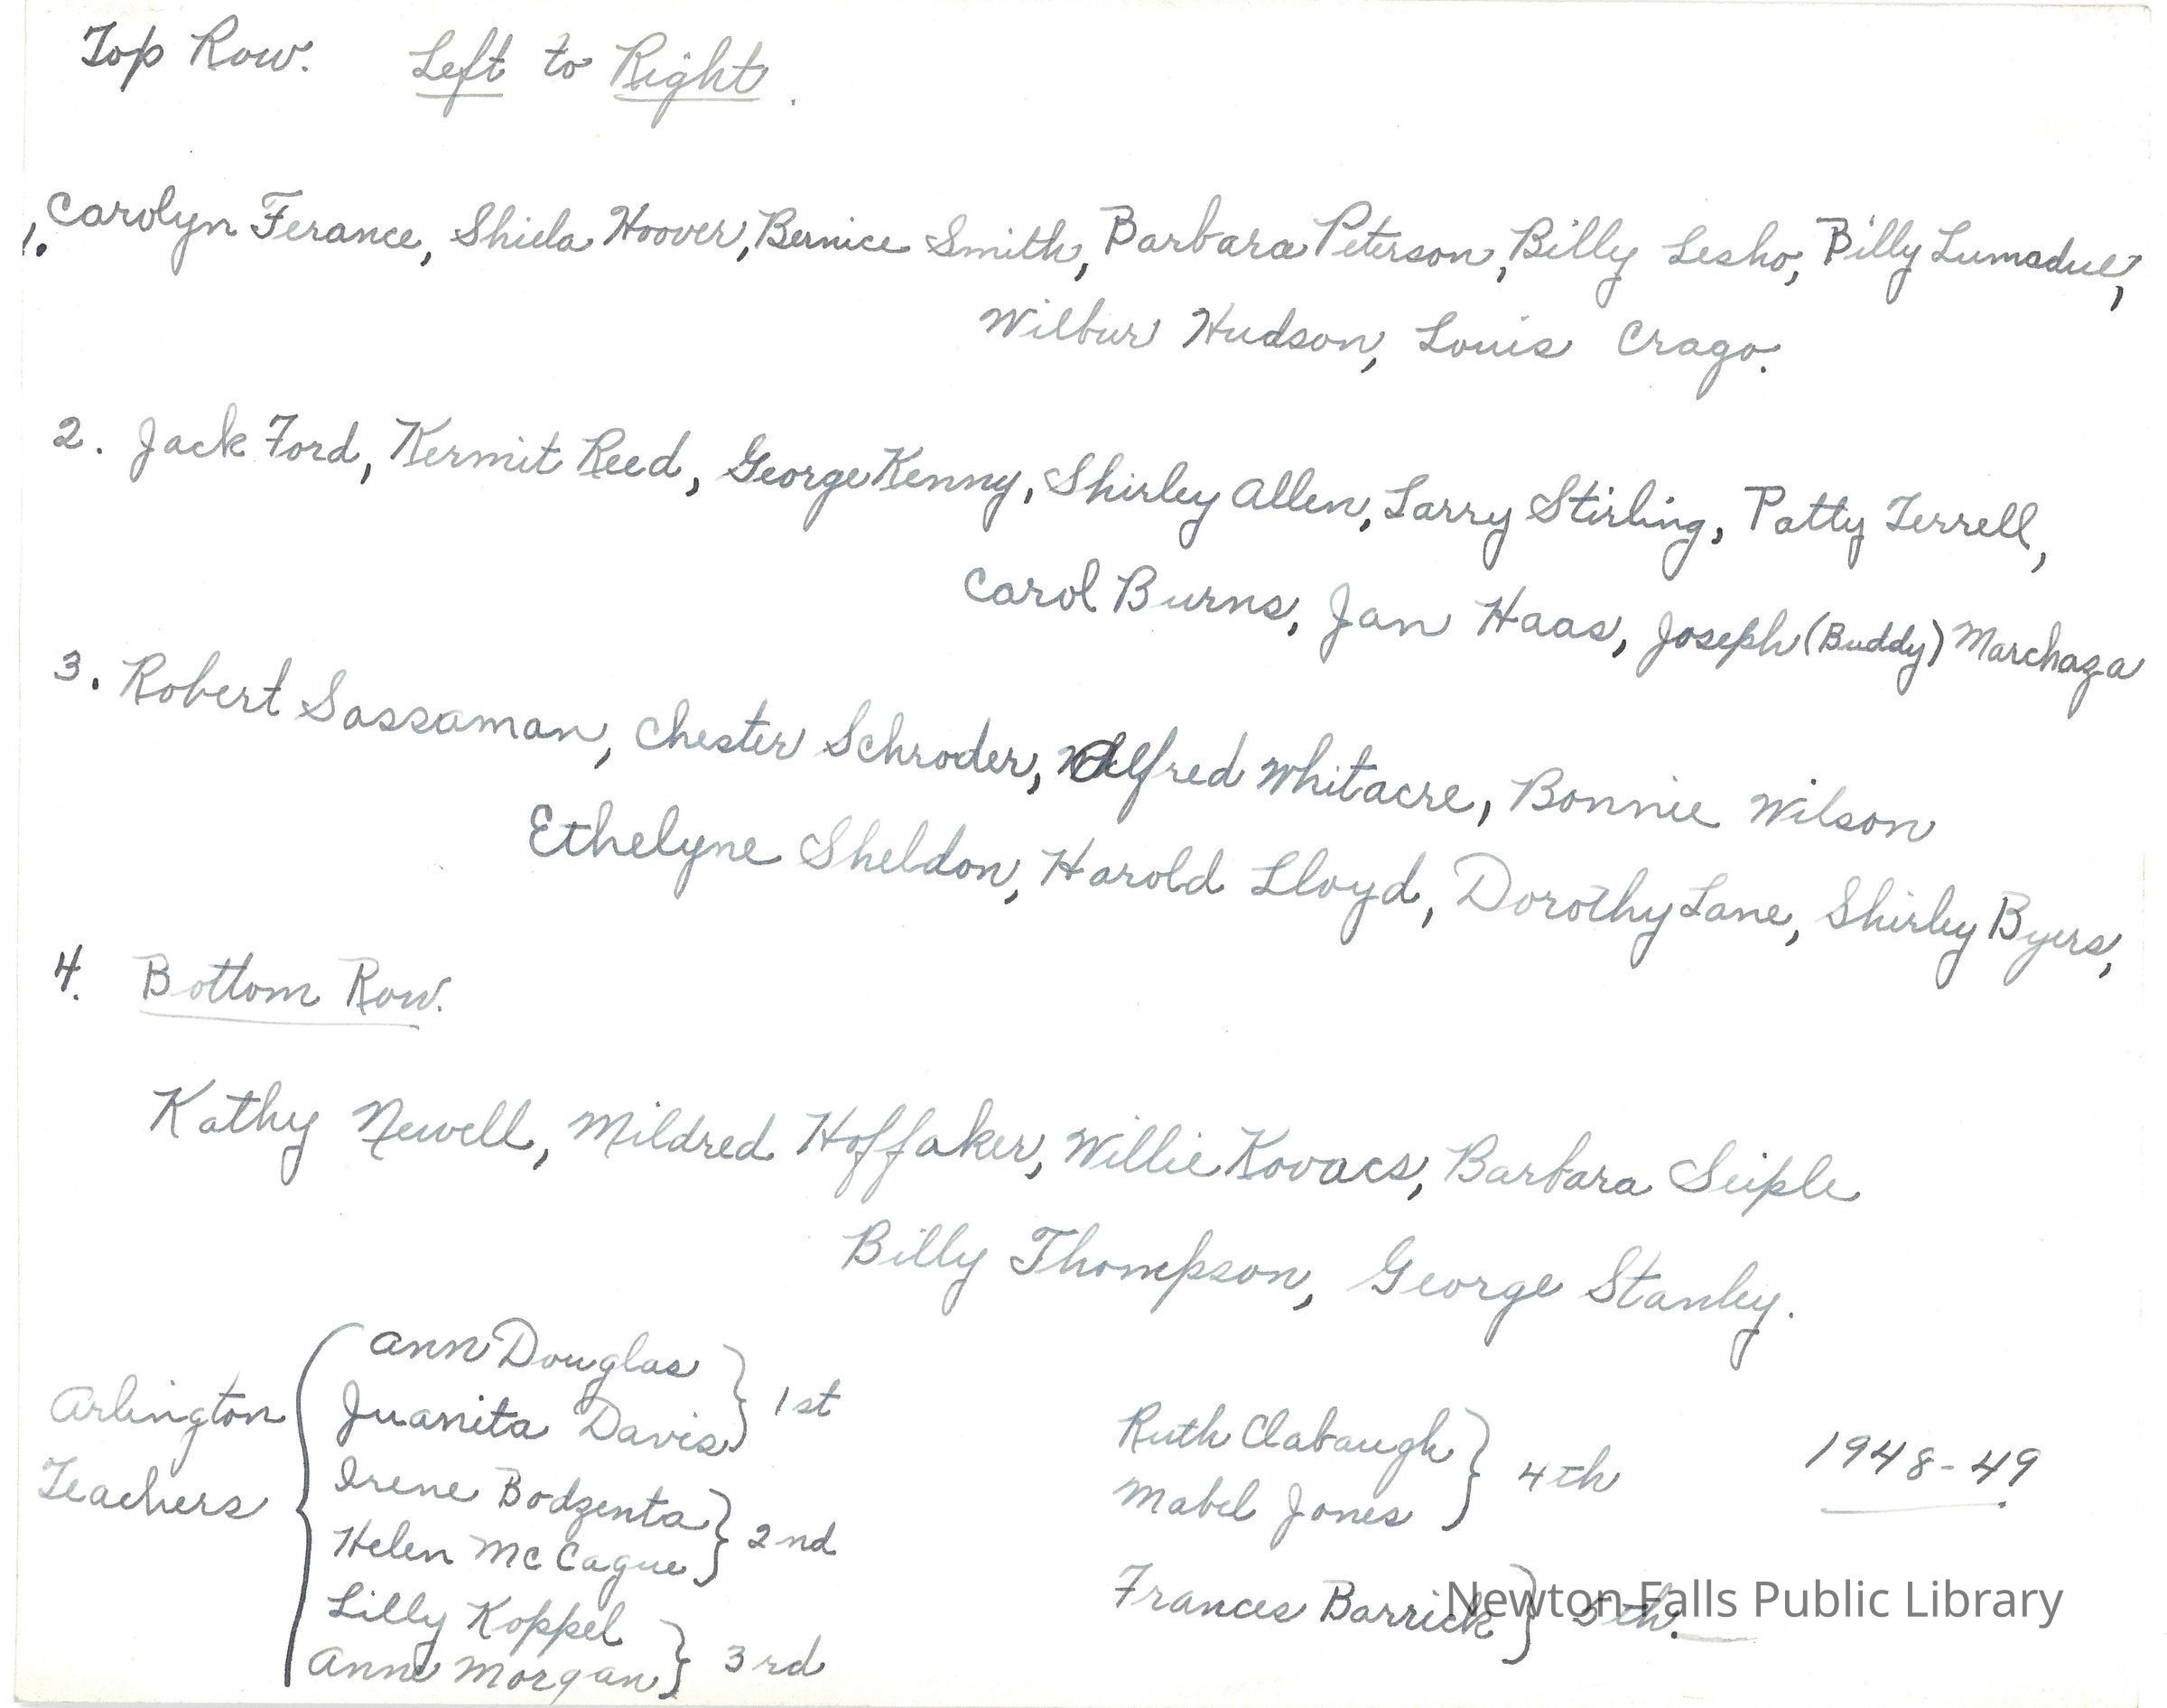 Top Row. Left to Right.
1. Carolyn Ferance, Shiela Hoover, Bernice Smith, Barbara Peterson, Billy Lesho, Billy Lumadue,
Wilbur Hudson, Louis Crago.
2. Jack Ford, Kermit Reed, George Kenny, Shirley Allen, Larry Stirling, Patty Terrell,
Carol Burns, Jan Haas, Joseph (Buddy) Marchaza
3. Robert Sassaman, Chester Schroder, Alfred Whitacre, Bonnie Wilson
Ethelyne Sheldon, Harold Lloyd, Dorothy Lane, Shirley Byers,
4. Bottom Row.
Kathy Newell, Mildred Hoffaker, Willie Kovacs, Barbara Seiple
Billy Thompson, George Stanley.
Arlington
Teachers
Ann Douglas
Juanita Davis } 1st
Irene Bodzenta
Helen McCague } 2nd
Lilly Koppel
Anne Morgan } 3rd
Ruth Clabaugh
Mabel Jones } 4th
Frances Barrick } 5th.
1948-49
Newton Falls Public Library